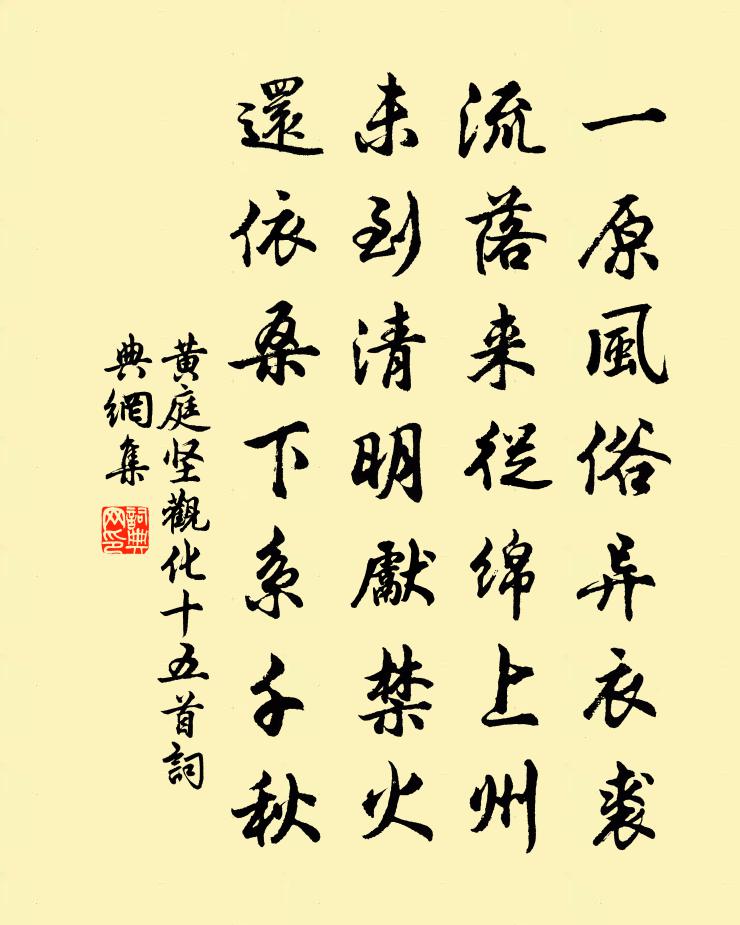 一原風俗异衣裘
流落来從綿上州
未到清明獻禁火
還依桑下系千秋
黄庭坚觀化十五首詞
典網集
詞典
网印